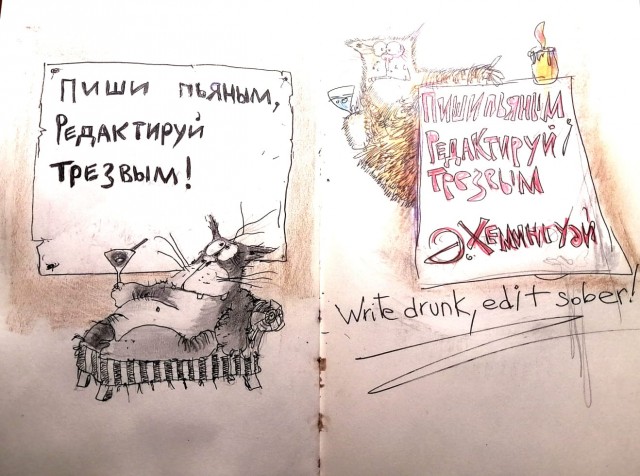 Пиши пьяным,
Редактируй
трезвым!
Пиши пьяным,
Редактируй
трезвым
Э. Хемингуэй
Write drunk, edit sober!